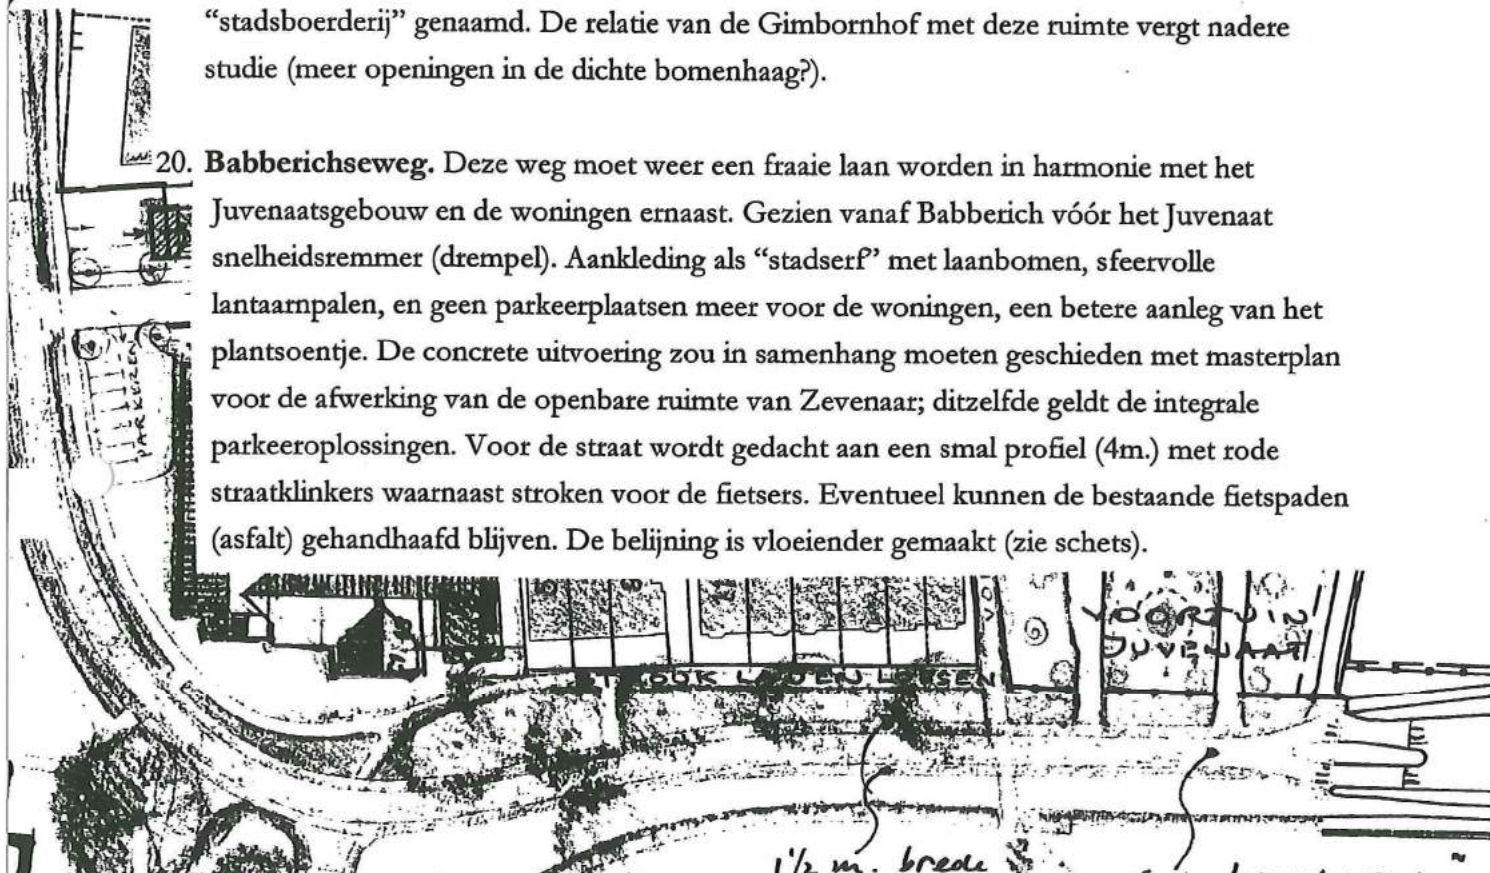 “stadsboerderij” genaamd. De relatie van de Gimbornhof met deze ruimte vergt nadere
studie (meer openingen in de dichte bomenhaag?).
20. Babberichseweg. Deze weg moet weer een fraaie laan worden in harmonie met het
Juvenaatsgebouw en de woningen ernaast. Gezien vanaf Babberich vóór het Juvenaat
snelheidsremmer (drempel). Aankleding als “stadserf” met laanbomen, sfeervolle
lantaarnpalen, en geen parkeerplaatsen meer voor de woningen, een betere aanleg van het
plantsoentje. De concrete uitvoering zou in samenhang moeten geschieden met masterplan
voor de afwerking van de openbare ruimte van Zevenaar; ditzelfde geldt de integrale
parkeeroplossingen. Voor de straat wordt gedacht aan een smal profiel (4m.) met rode
straatklinkers waarnaast stroken voor de fietsers. Eventueel kunnen de bestaande fietspaden
(asfalt) gehandhaafd blijven. De belijning is vloeiender gemaakt (zie schets).
PARKEREN
VOORTUIN
JUVENAAT
OOK LADEN LOSSEN
1½ m. brede